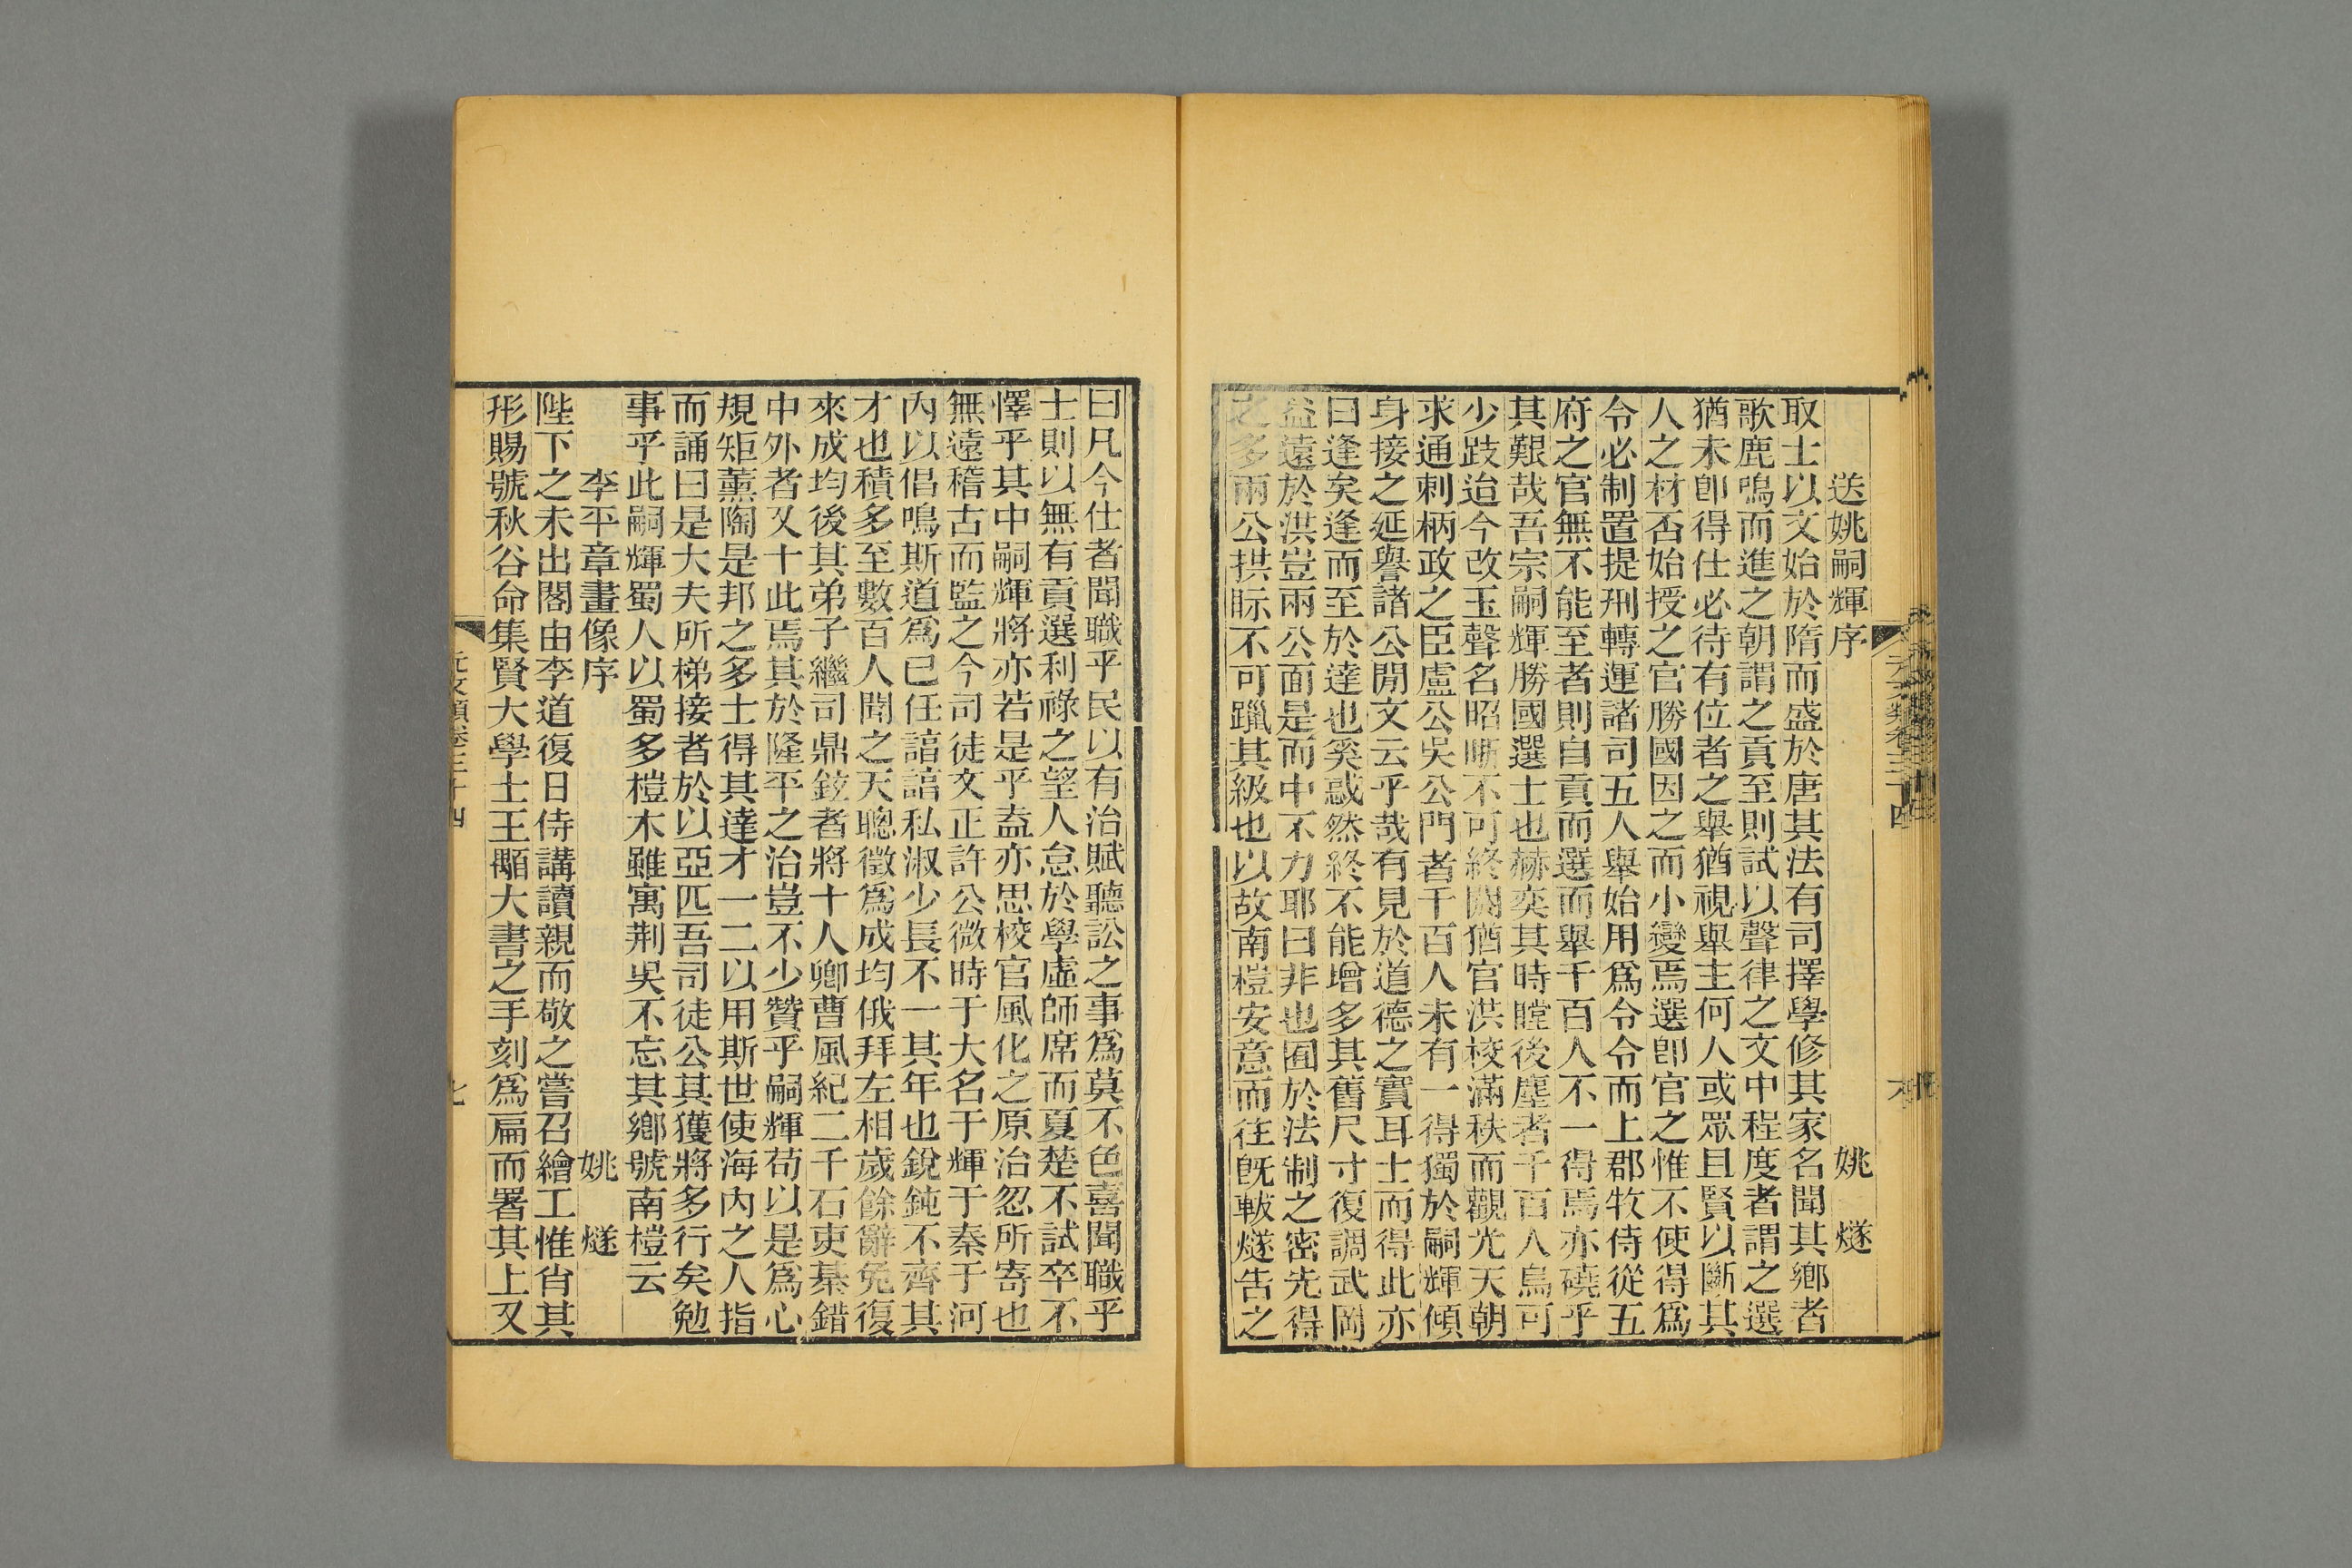 送姚嗣輝序 姚 燧
取士以文始於隋而盛於唐其法有司擇學修其家名聞其鄉者
歌鹿鳴而進之朝謂之貢至則試以聲律之文中程度者謂之選
猶未卽得仕必待有位者之舉猶視舉主何人或眾且賢以斷其
人之材否始授之官勝國因之而小變焉選卽官之惟不使得爲
令必制置提刑轉運諸司五人舉始用爲令令而上郡牧侍從五
府之官無不能至者則自貢而選而舉千百人不一得焉亦磽乎
其艱哉吾宗嗣輝勝國選士也赫奕其時瞠後塵者千百人烏可
少跂迨今改玉聲名昭晰不可終閟猶官洪校滿秩而觀光天朝
求通刺柄政之臣盧公吳公門者千百人未有一得獨於嗣輝傾
身接之延譽諸公閒文云乎哉有見於道德之實耳士而得此亦
曰逢矣逢而至於達也奚惑然終不能增多其舊尺寸復調武岡
益遠於洪豈兩公面是而中不力耶曰非也囿於法制之密先得
之多兩公拱眎不可躐其級也以故南榿安意而往旣軷燧告之
曰凡今仕者聞職乎民以有治賦聽訟之事爲莫不色喜聞職乎
士則以無有貢選利祿之望人怠於學虛師席而夏楚不試卒不
懌乎其中嗣輝將亦若是乎盍亦思校官風化之原治忽所寄也
無遠稽古而監之今司徒文正許公微時于大名于輝于秦于河
內以倡鳴斯道爲已任諳諳私淑少長不一其年也銳鈍不齊其
才也積多至數百人聞之天聰徵爲成均俄拜左相歲餘辭免復
來成均後其弟子繼司鼎鉉者將十人卿曹風紀二千石吏棊錯
中外者又十此焉其於隆平之治豈不少贊乎嗣輝苟以是爲心
規矩薰陶是邦之多士得其達才一二以用斯世使海內之人指
而誦曰是大夫所梯接者於以亞匹吾司徒公其獲將多行矣勉
事乎此嗣輝蜀人以蜀多榿木雖寓荆吳不忘其鄉號南榿云
李平章畫像序 姚 燧
陛下之未出閤由李道復日侍講讀親而敬之嘗召繪工惟肖其
形賜號秋谷命集賢大學士王顒大書之手刻爲扁而署其上又
元文類卷三十四 七